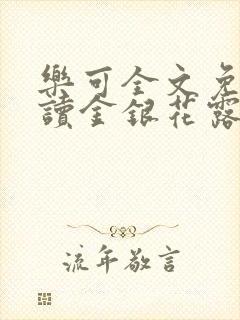 樂可全文免
讀金銀花露
流年敬言